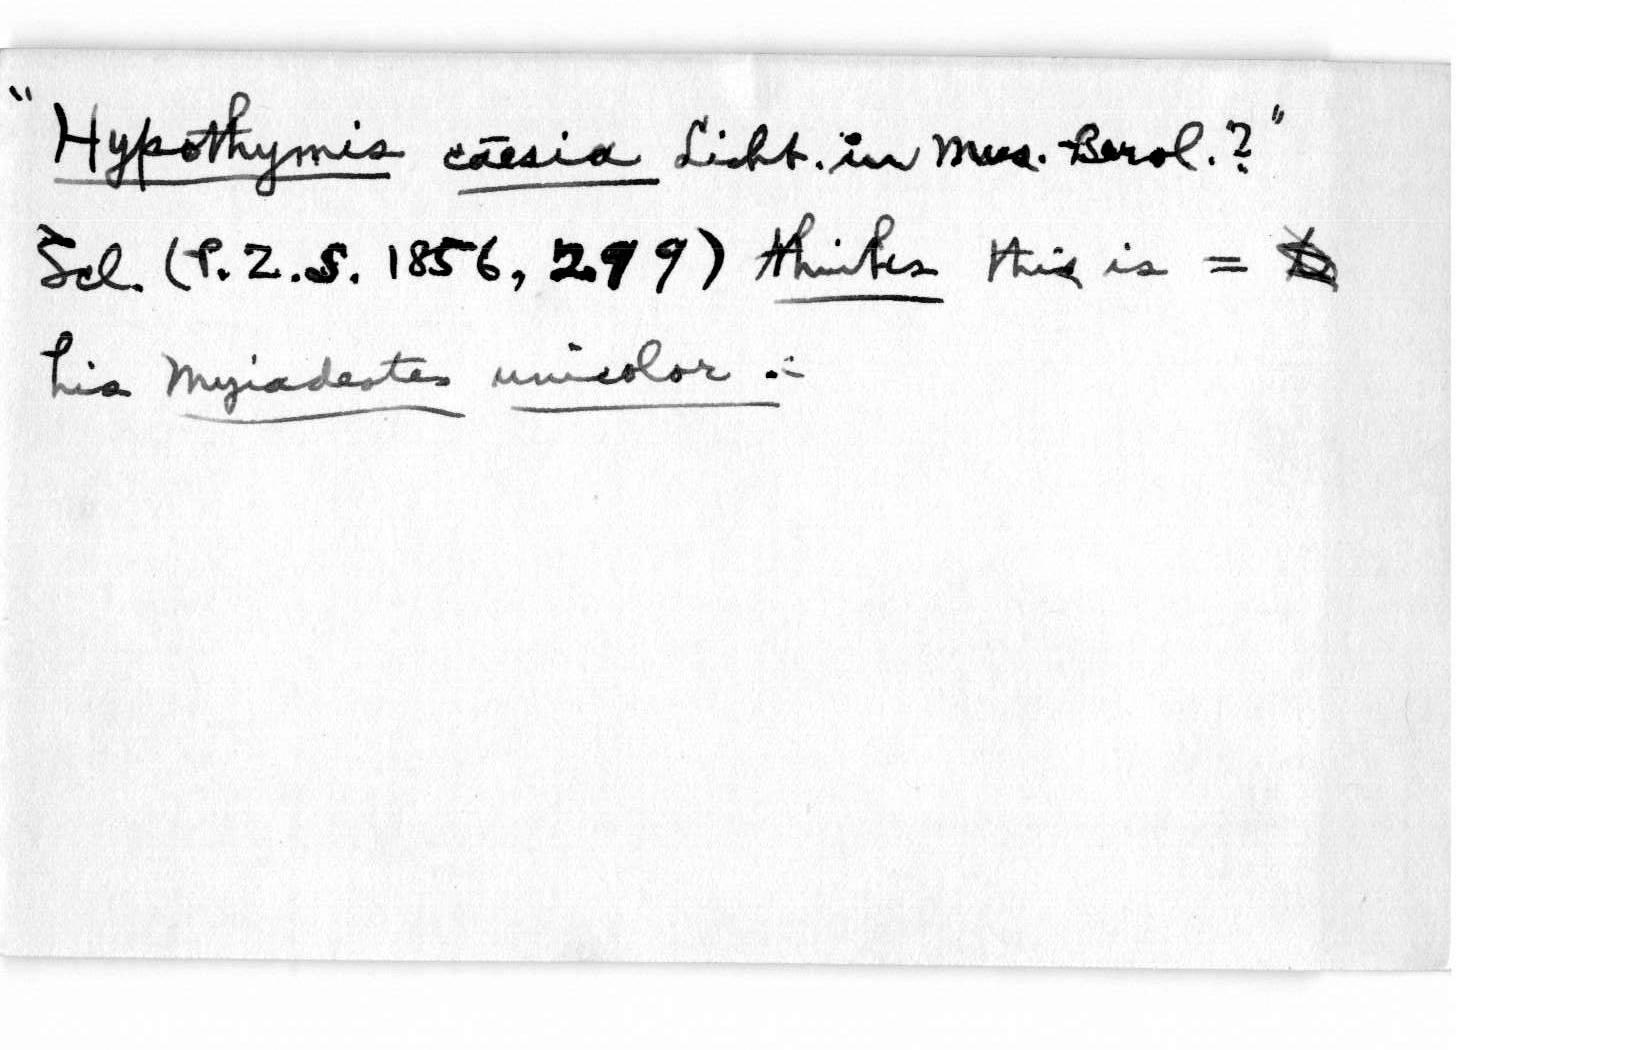 "Hypothymis caesia Licht. in Mus. Berol.?"
Scl. (P.Z.S. 1856, 299) thinks this is =
his Myiadestes unicolor.